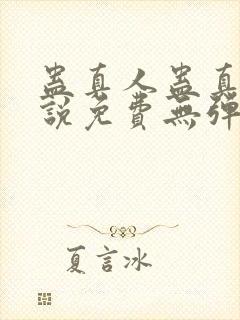 蠱真人蠱真
說免費無彈
夏言冰